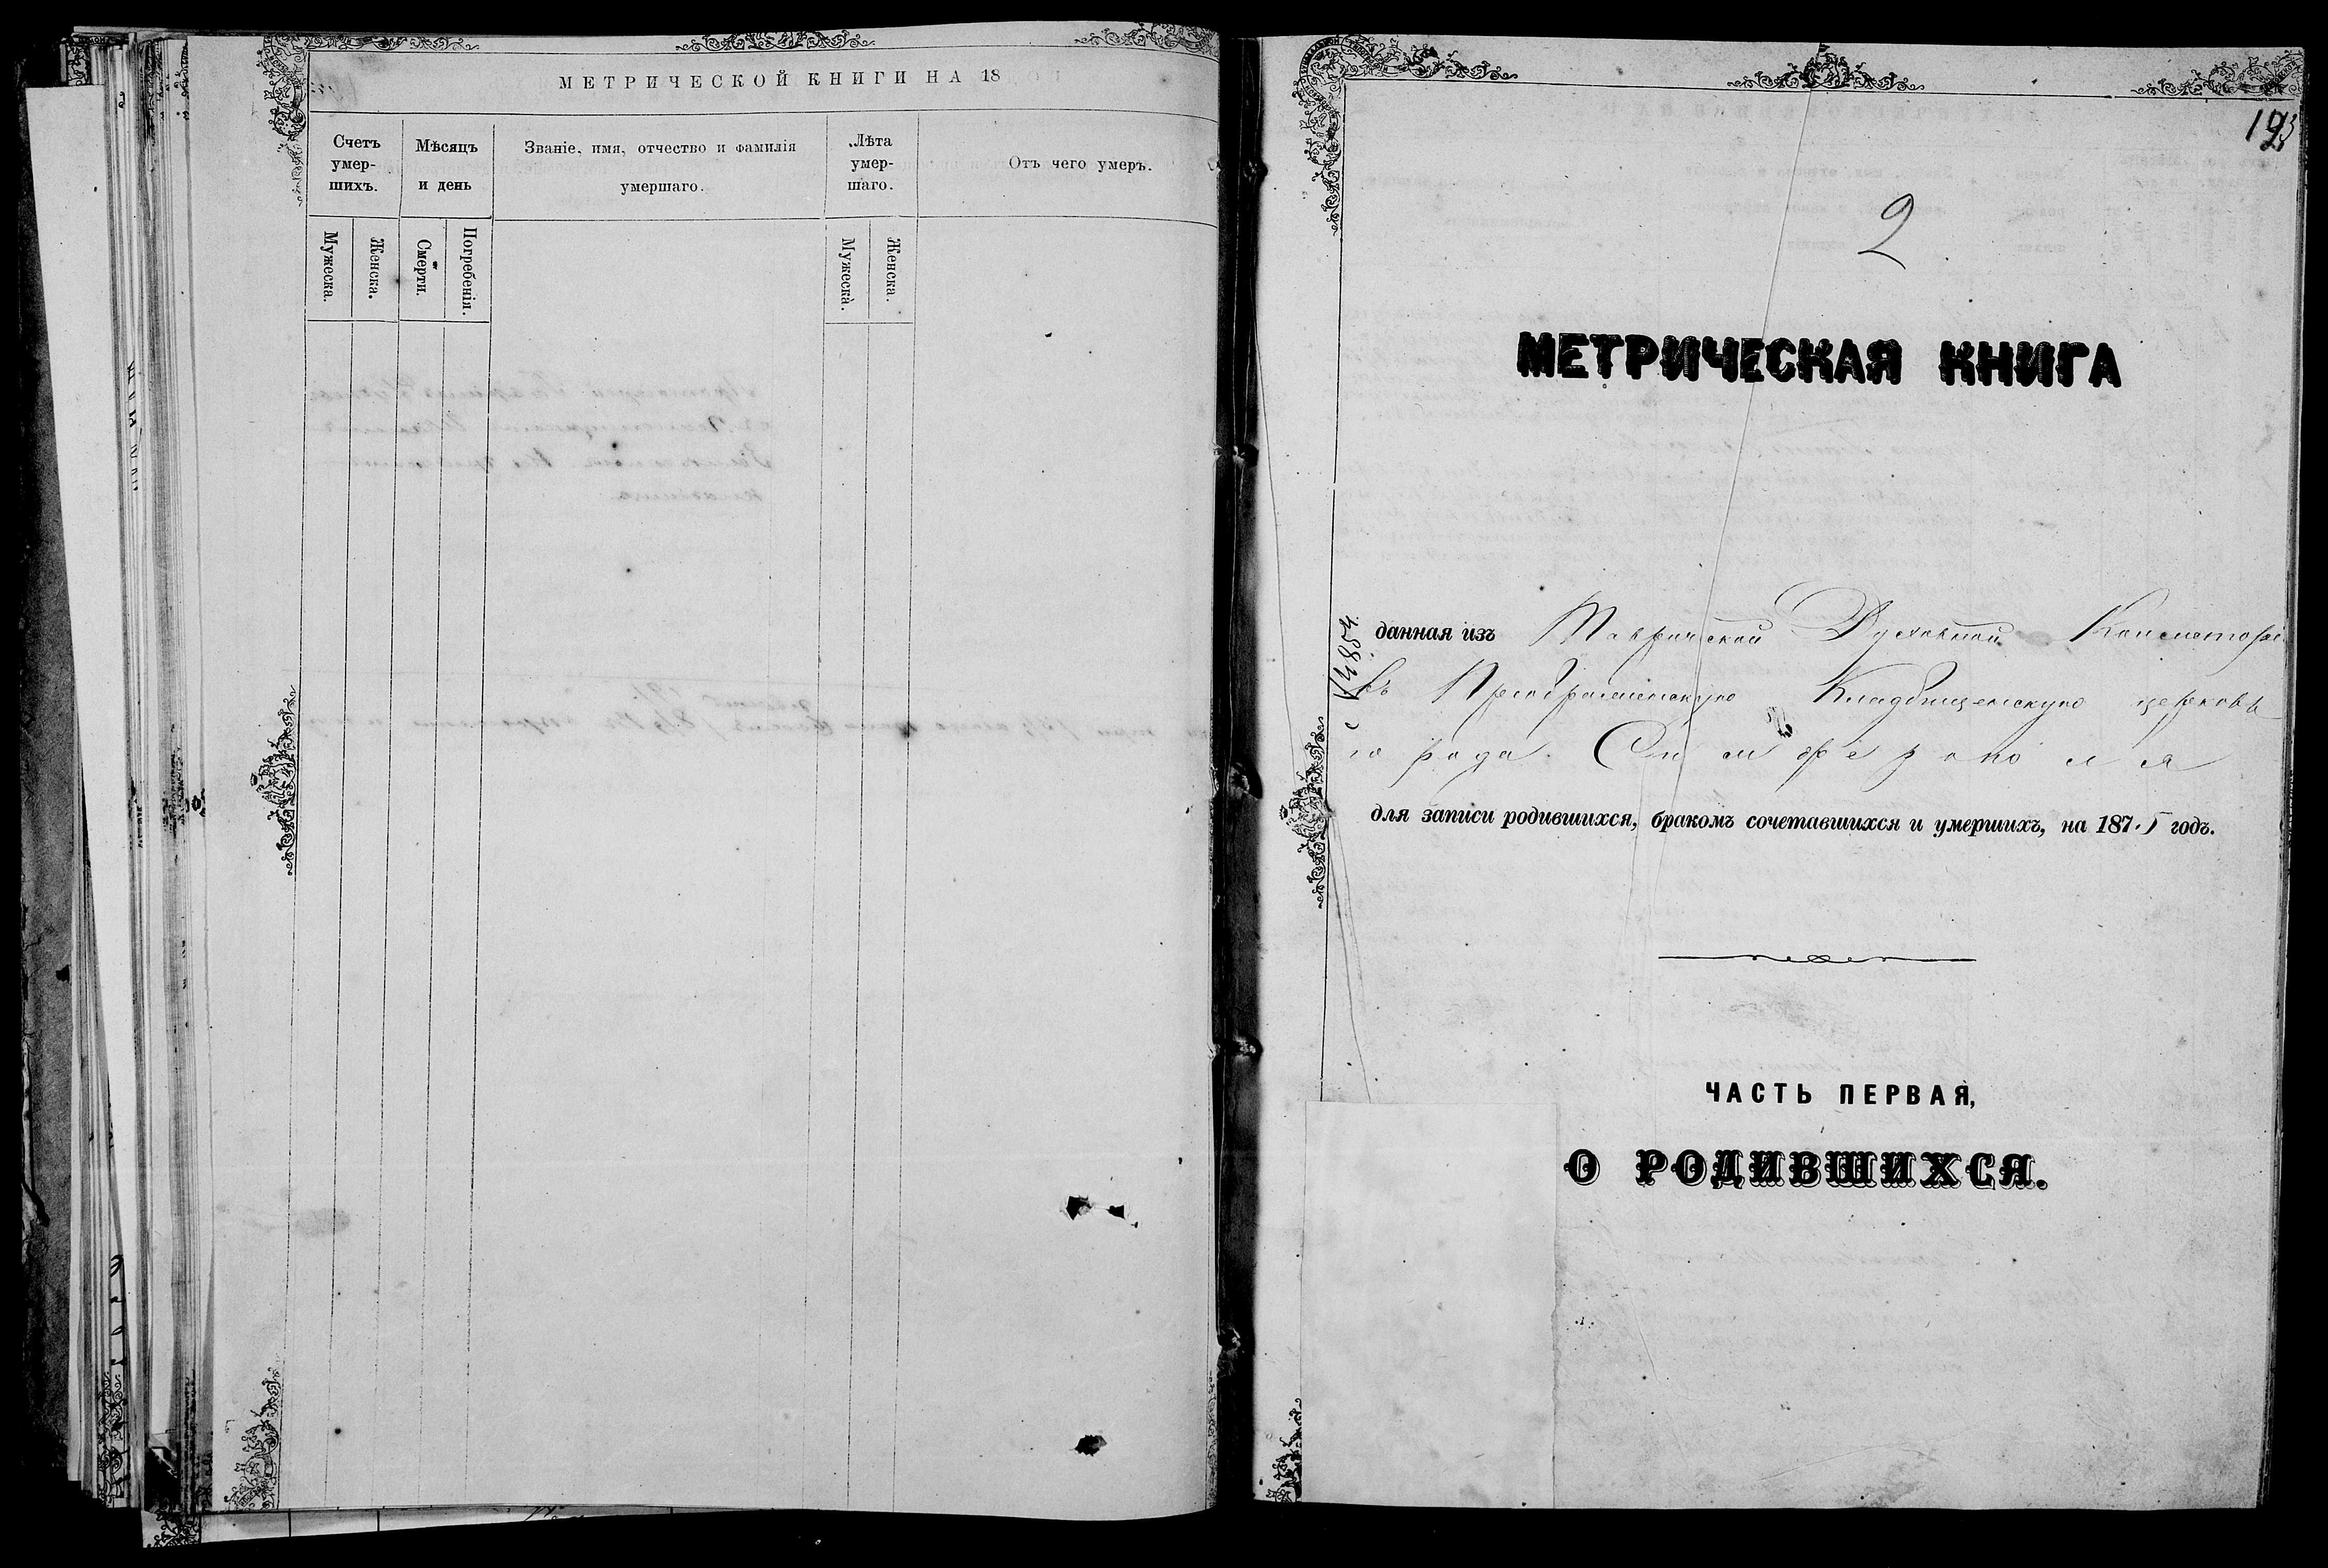 МЕТРИЧЕСКОЙ КНИГИ НА 18
Счетъ умер-шихъ.
Мѣсяцъ и день
Званіе, имя, отчество и фамилія умершаго.
Лѣта умер-шаго.
Отъ чего умеръ.
Мужеска.
Женска.
Смерти.
Погребенія.
Мужеска.
Женска.
2
МЕТРИЧЕСКАЯ КНИГА
данная изъ Таврической Духовной Консисторі
въ Преображенскую Кладбищенскую церковь
города Симферополя
для записи родившихся, бракомъ сочетавшихся и умершихъ, на 1875 годъ.
ЧАСТЬ ПЕРВАЯ,
О РОДИВШИХСЯ.